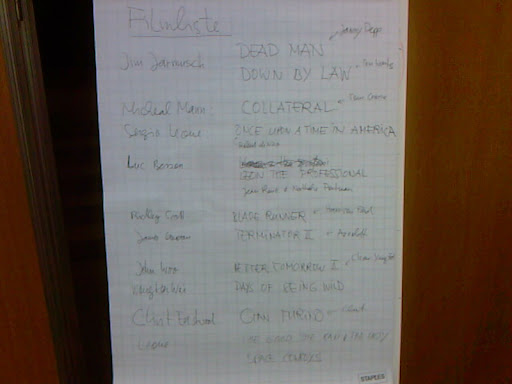 Filmliste
Johnny Depp
Jim Jarmusch DEAD MAN
DOWN BY LAW Tom Waits
Micheal Mann COLLATERAL Tom Cruise
Sergio Leone ONCE UPON A TIME IN AMERICA
Luc Besson
LEON THE PROFESSIONAL
Jean Reno & Nathalie Portman
Ridley Scott BLADE RUNNER Harrison Ford
James Cameron TERMINATOR II Arnold
John Woo BETTER TOMORROW I
DAYS OF BEING WILD
Clint Eastwood GRAN TORINO Clint
Leone THE GOOD THE BAD & THE UGLY
SPACE COWBOYS
STAPLES